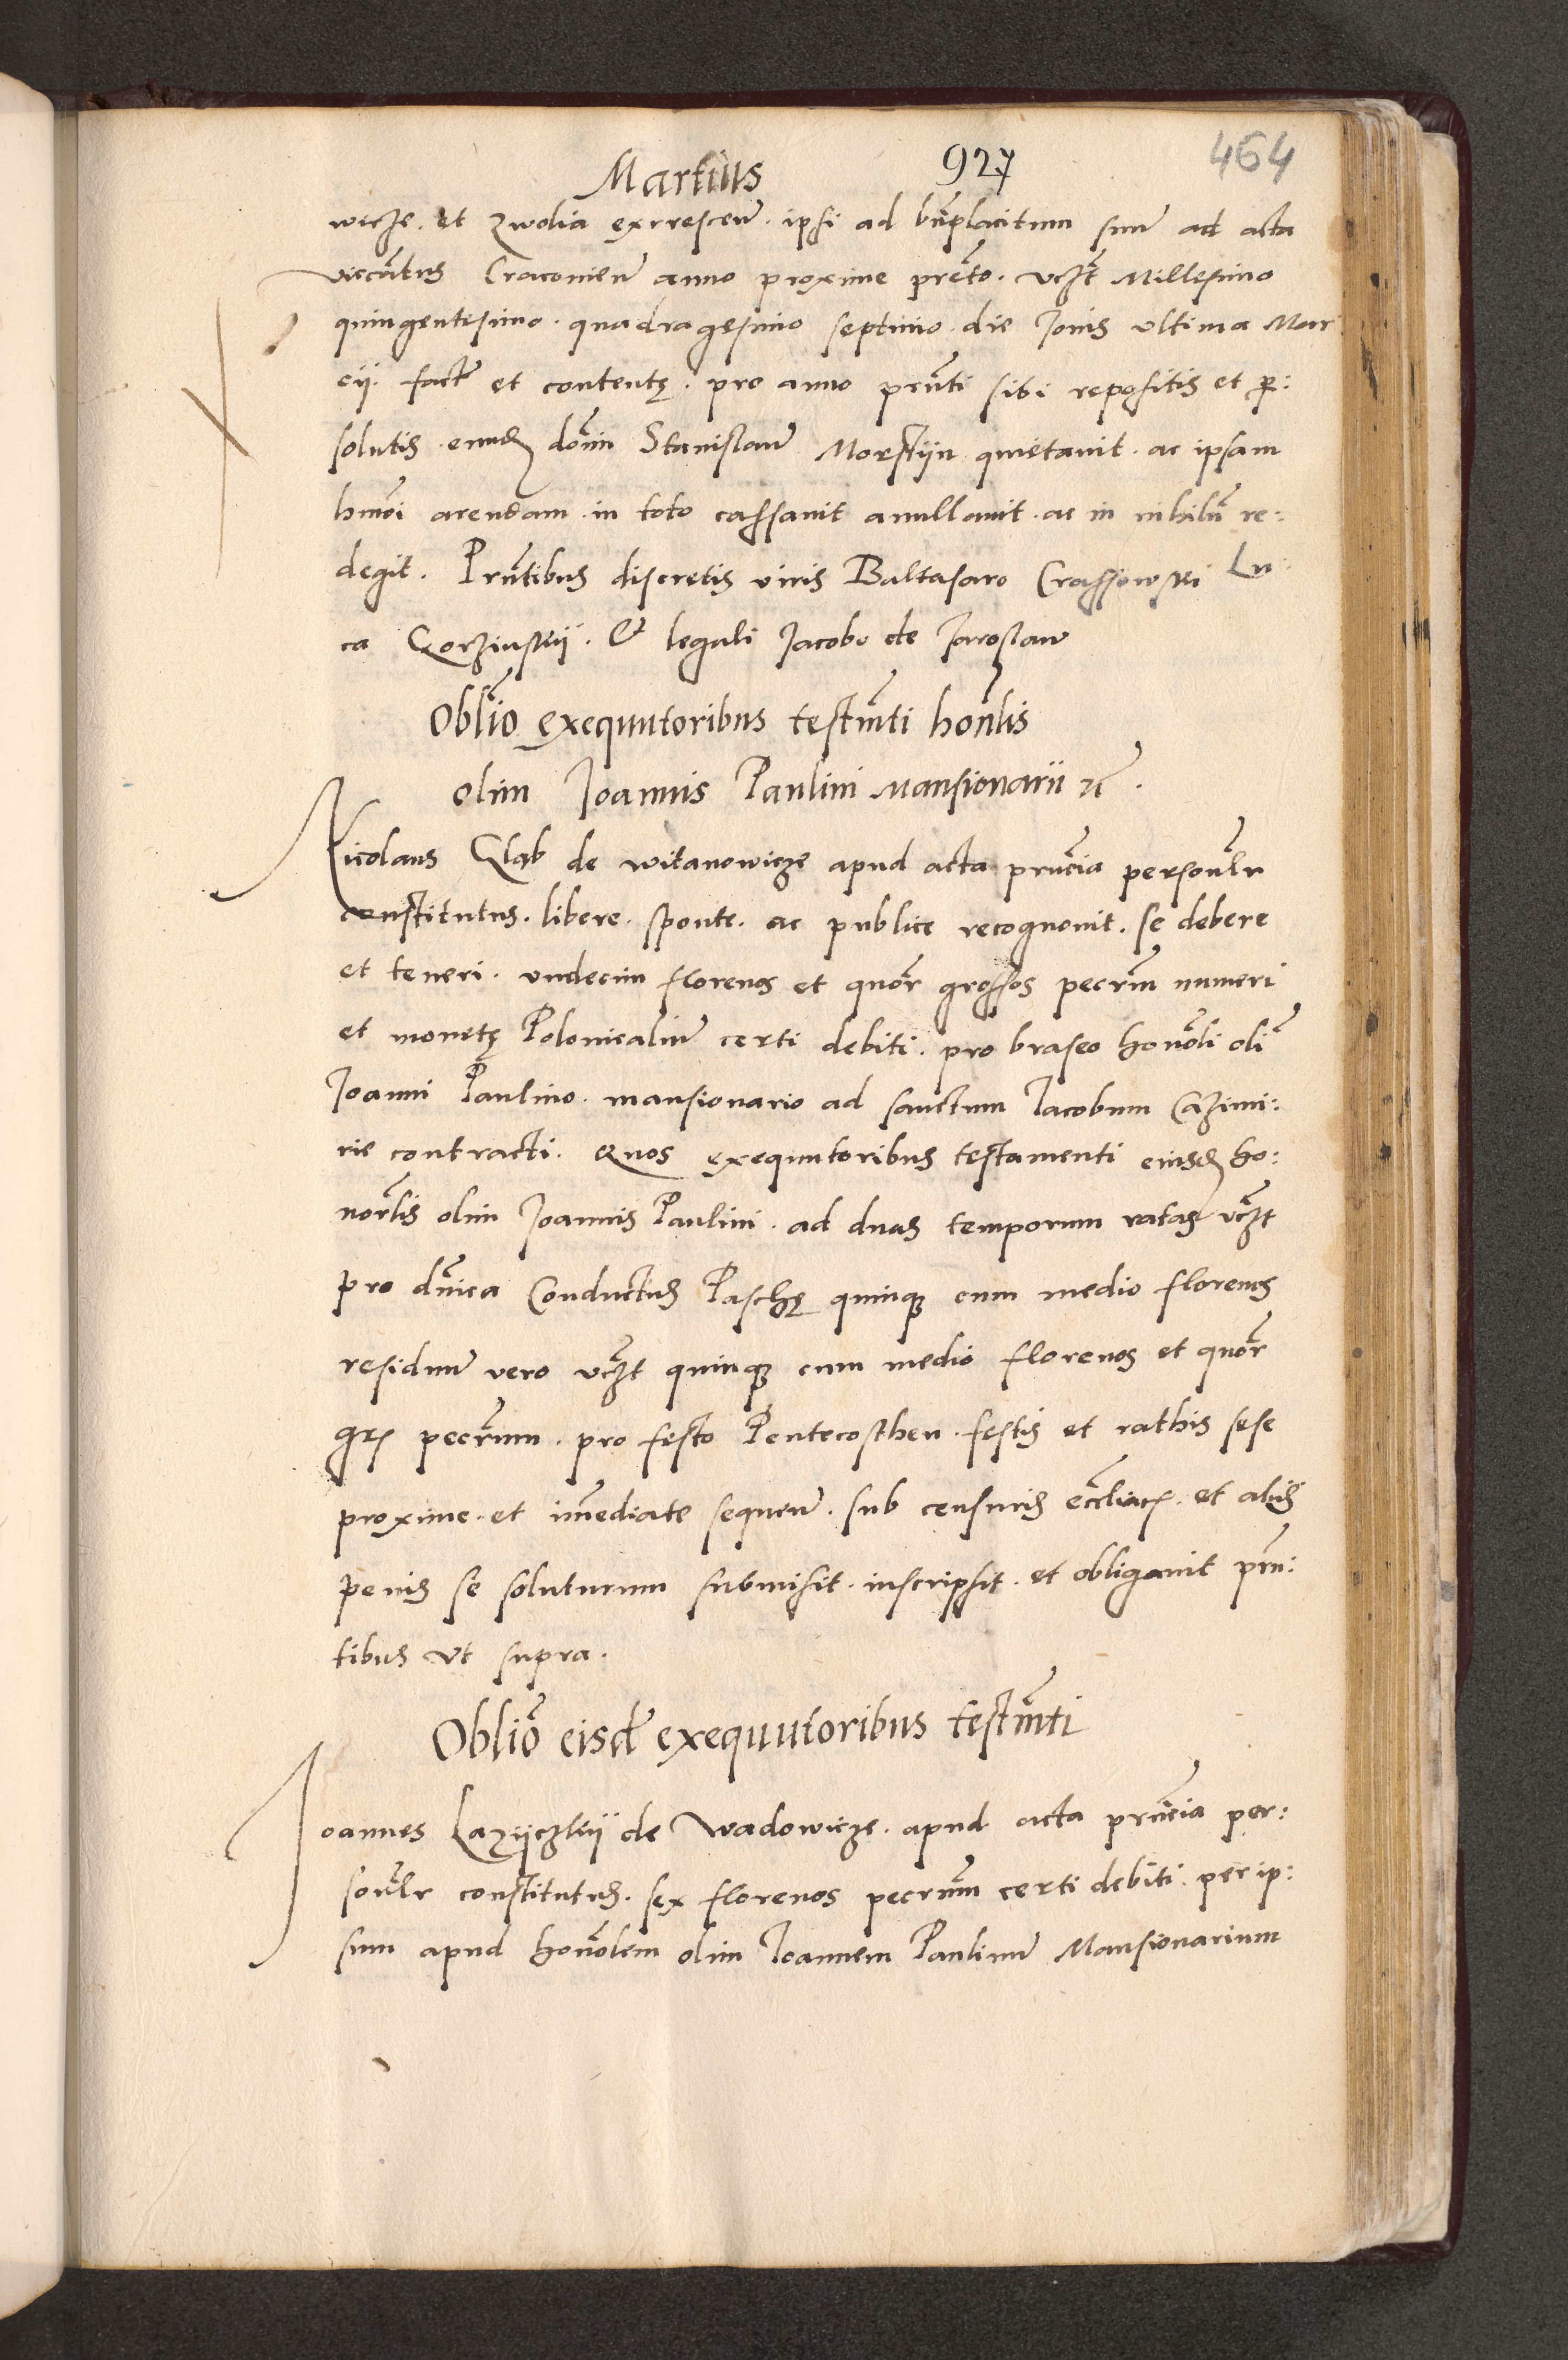 Martius 927 464
wicze. et Zwolia excrescen̄. ipsi ad bn̄placitum suum ad acta
vicariatus Cracovien̄ anno proxime prēto. vcz̄t Millesimo
quingentesimo. quadragesimo septimo. die Jovis ultima Mar
cii. fact̄ et contentę. pro anno prn̄ti sibi repositis et per:
solutis. eundem domin̄ Stanislaum Morstijn quietavit. ac ipsam
hmōi arendam. in toto cassavit anullavit. ac in nihilū re:
degit. Prn̄tibus discretis viris Baltasaro Crassowski Lu:
ca Gorzinskij. & legali Jacobo de Jaroslaw
Oblīo exequutoribus testm̄ti honor̄lis
olim Joannis Paulini Mansionarii etc̄.
Nicolaus Gląb de witanowicze apud acta prn̄cia personl̄r
constitutus. libere. sponte. ac publice recognovit. se debere
et teneri. undecim florenos et quōr grossos pecr̄m numeri
et monetę Polonicaliū certi debiti. pro braseo honorl̄i olī
Joanni Paulino. mansionario ad sanctum Jacobum Cazimi:
rie contracti. Quos exequutoribus testamenti eiusdem ho:
norl̄is olim Joannis Paulini. ad duas temporum ratas vcz̄t
pro dn̄ica Conductus Paschę quinque cum medio florenos
residuum̄ vero vcz̄t quinque cum medio florenos et quōr
gros pecr̄um. pro festo Pentecosthen. festis et rathis sese
proxime. et im̄ediate sequen̄. sub censuris eccl̄iacis. et aliis
penis se soluturum submisit. inscripsit. et obligavit prn̄:
tibus ut supra.
Oblīo eisd̄ exequutoribus testm̄ti
Joannes Lazijczkij de Wadowicze. apud acta prn̄cia per:
sonl̄r constitutus. sex florenos pecrum̄ certi debiti. per ip:
sum apud honorl̄em olim Joannem Paulinum̄ Mansionarium